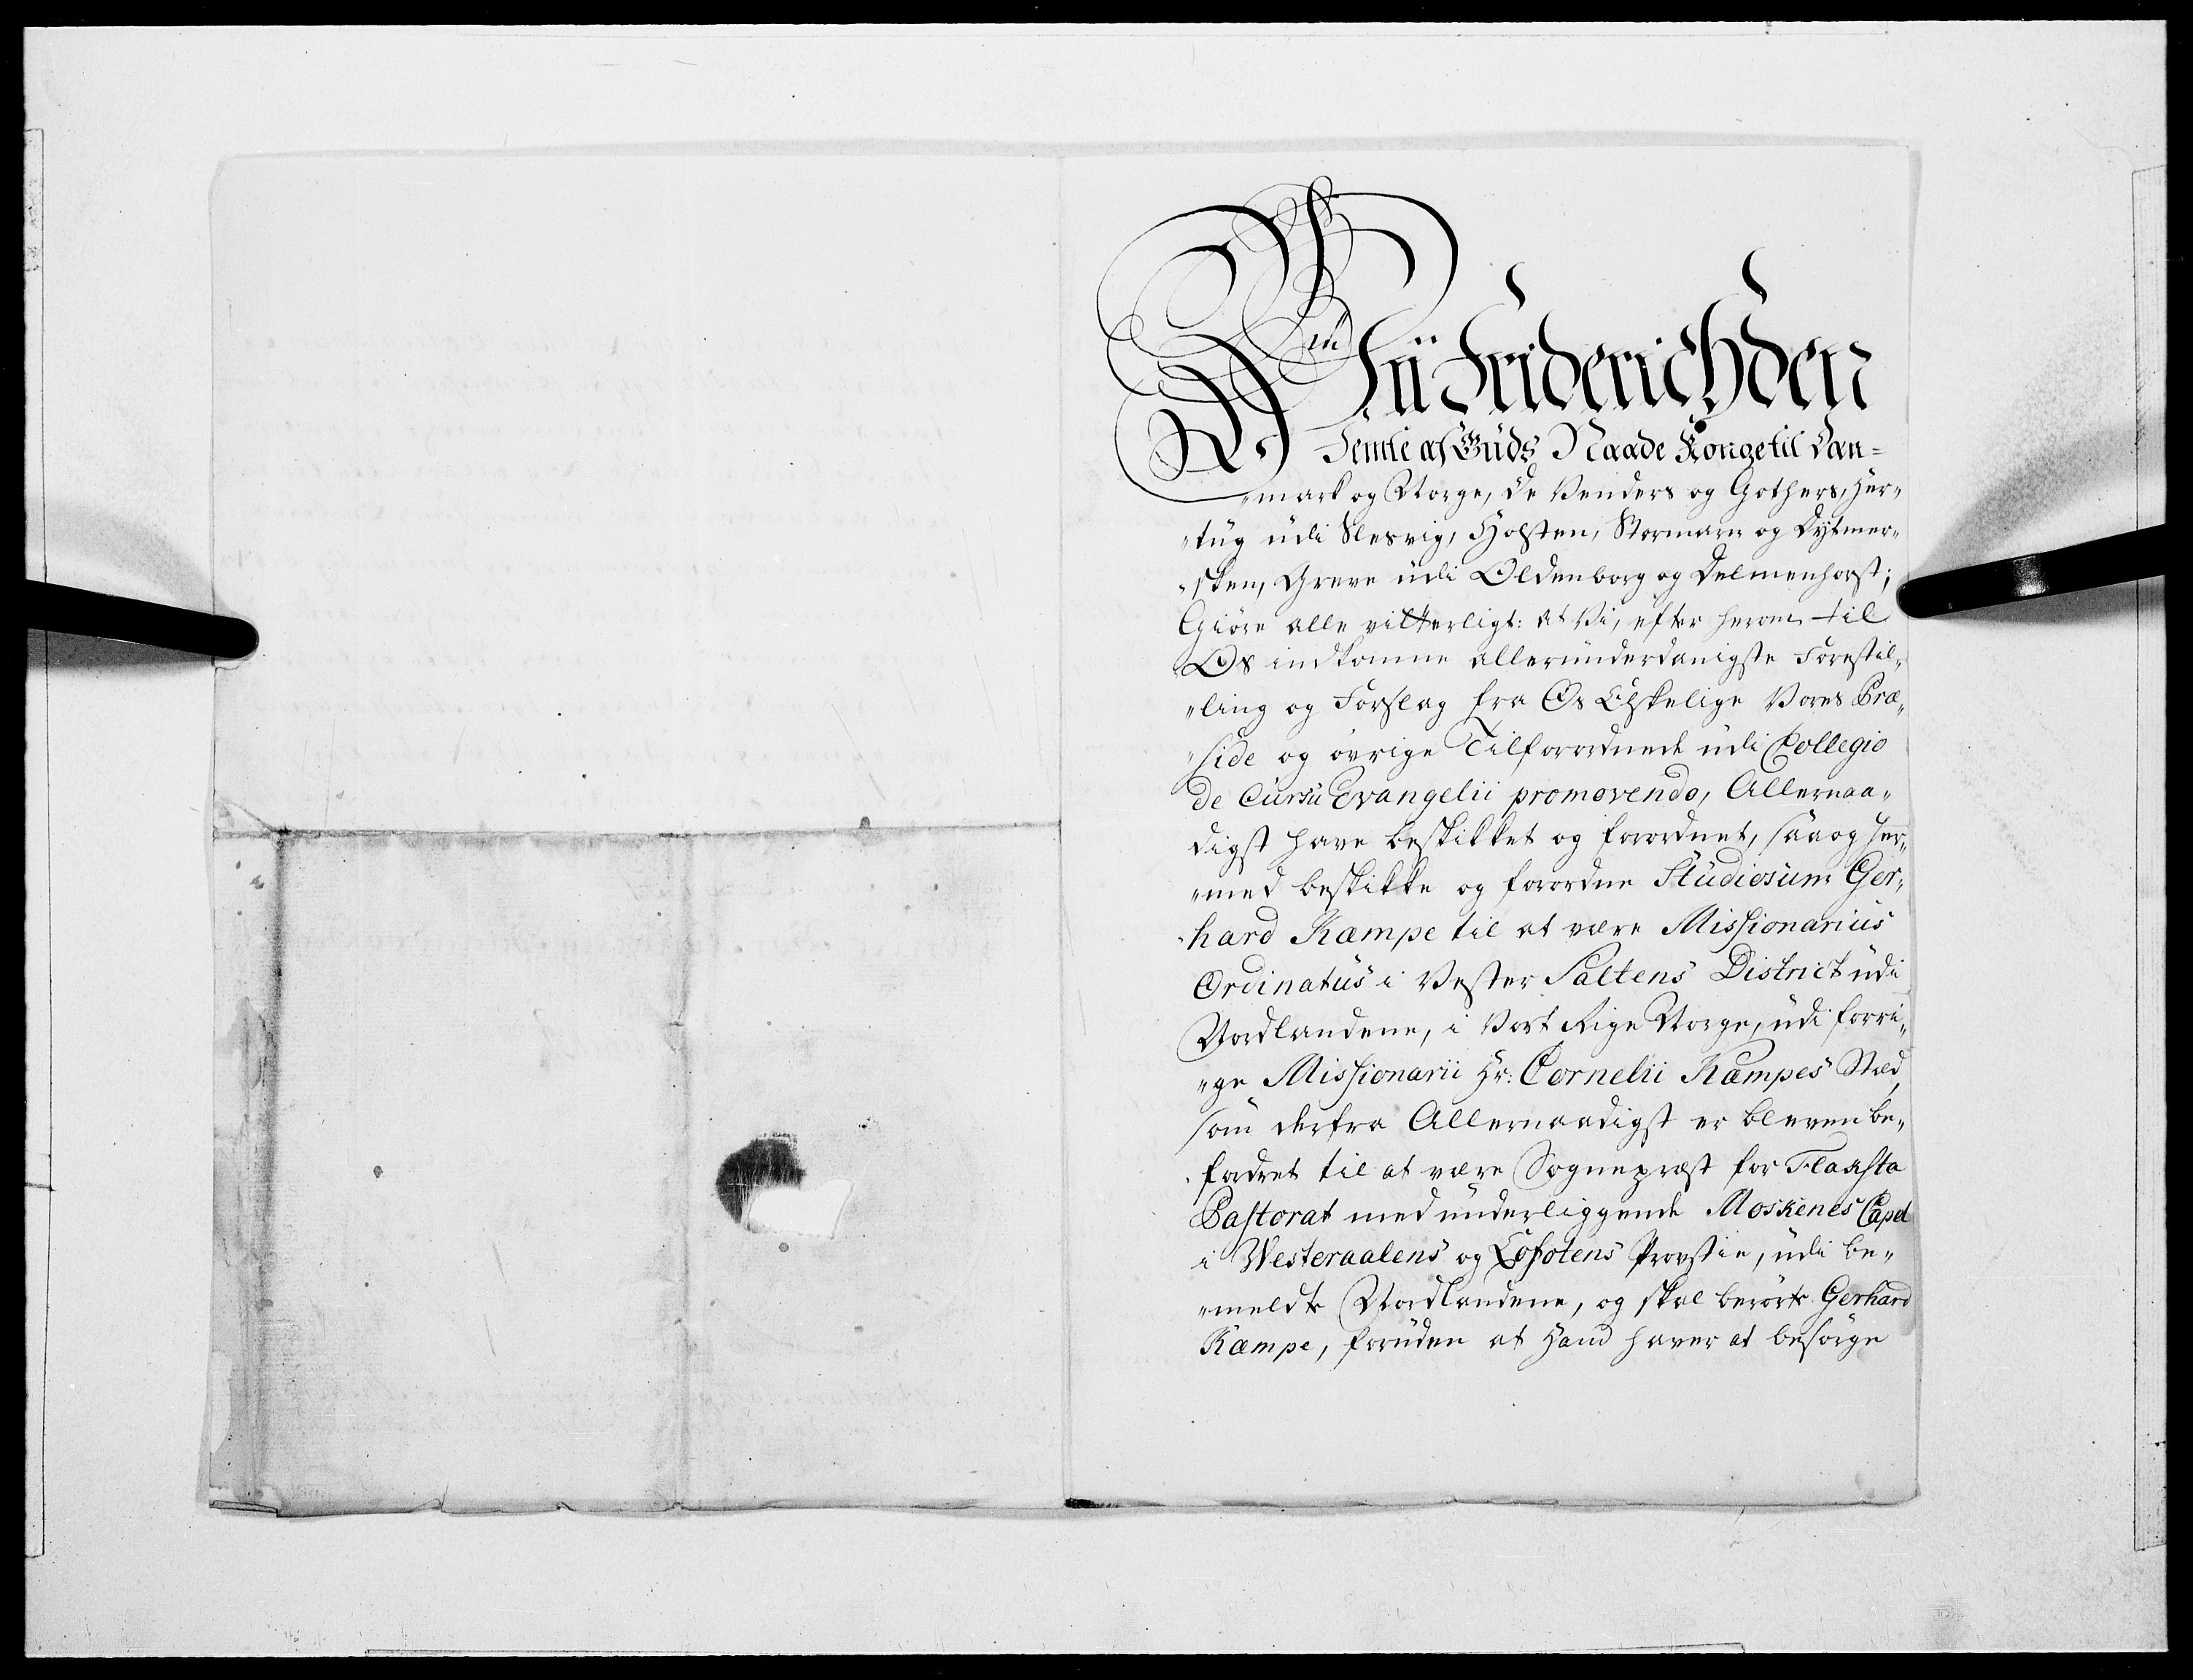 Wii Friderich den
Femte af Guds Naade Konge til Dan=
„mark og Norge, de Venders og Gothers, Her„
„tug udi Slesvig, Holsten, Stormarn og Dytmer„
„sken, Greve udi Oldenborg og Delmenhorst;
Giöre alle vitterligt: At Vi, efter herom til
Os indkomne allerunderdanigste Forestil„
„ling og Forslag fra Os Elskelige Vores Præ„
„side og övrige Tilforordnede udi Collegio
de Cursu Evangelii promovendo, Allernaa„
digst have beskikket og forordnet, saa og her„
„med beskikke og forordne Studiosum Ger„
„hard Kæmpe til at være Missionarius
Ordinatus i Vester Saltens District udi
Nordlandene, i Vort Rige Norge, udi forri„
„ge Missionarii Hr: Cornelii Kæmpes Stæd,
som derfra Allernaadigst er bleven be„
„fordret til at være Sognepræst for Flaksta
Pastorat med underliggende Moskenes Capel
i Westeraalens og Lofotens Provstie, udi be„
„meldte Nordlandene, og skal berörte Gerhard
Kæmpe, foruden at Hand haver at besörge